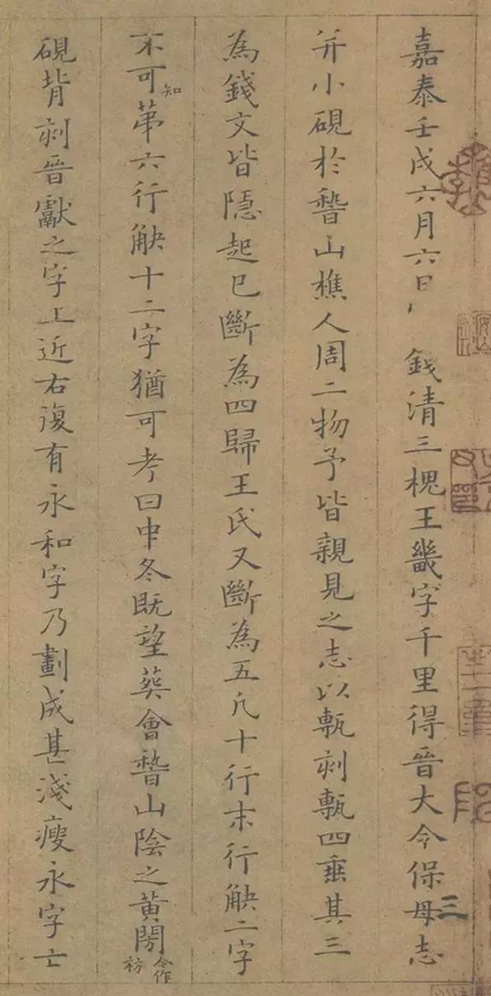 嘉泰壬戌六月六日錢清三槐王畿字千里得晉大令保母志
并小硯於稽山樵人周二物予皆親見之志以甎刻甎四垂其三
為錢文皆隱起已斷為四歸王氏又斷為五凡十行末行觖二字
不可知苐六行觖十二字猶可考曰中冬既望葬會稽山陰之黃閍合作祊
硯背刻晉獻之字上近右復有永和字乃劃成甚淺瘦永字亡